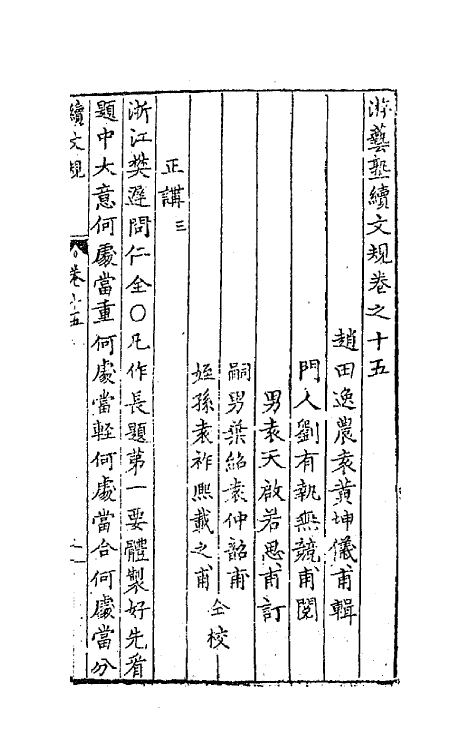 游藝塾續文規卷之十五
趙田逸農袁黃坤儀甫輯
門人劉有執無競甫閱
男袁天啟若思甫訂
嗣男葉紹袁仲韶甫
姪孫袁祚熙載之甫
仝校
正講三
浙江樊遲問仁全〇凡作長題第一要體製好先看
題中大意何處當重何處當輕何處當合何處當分
續文規
卷十五